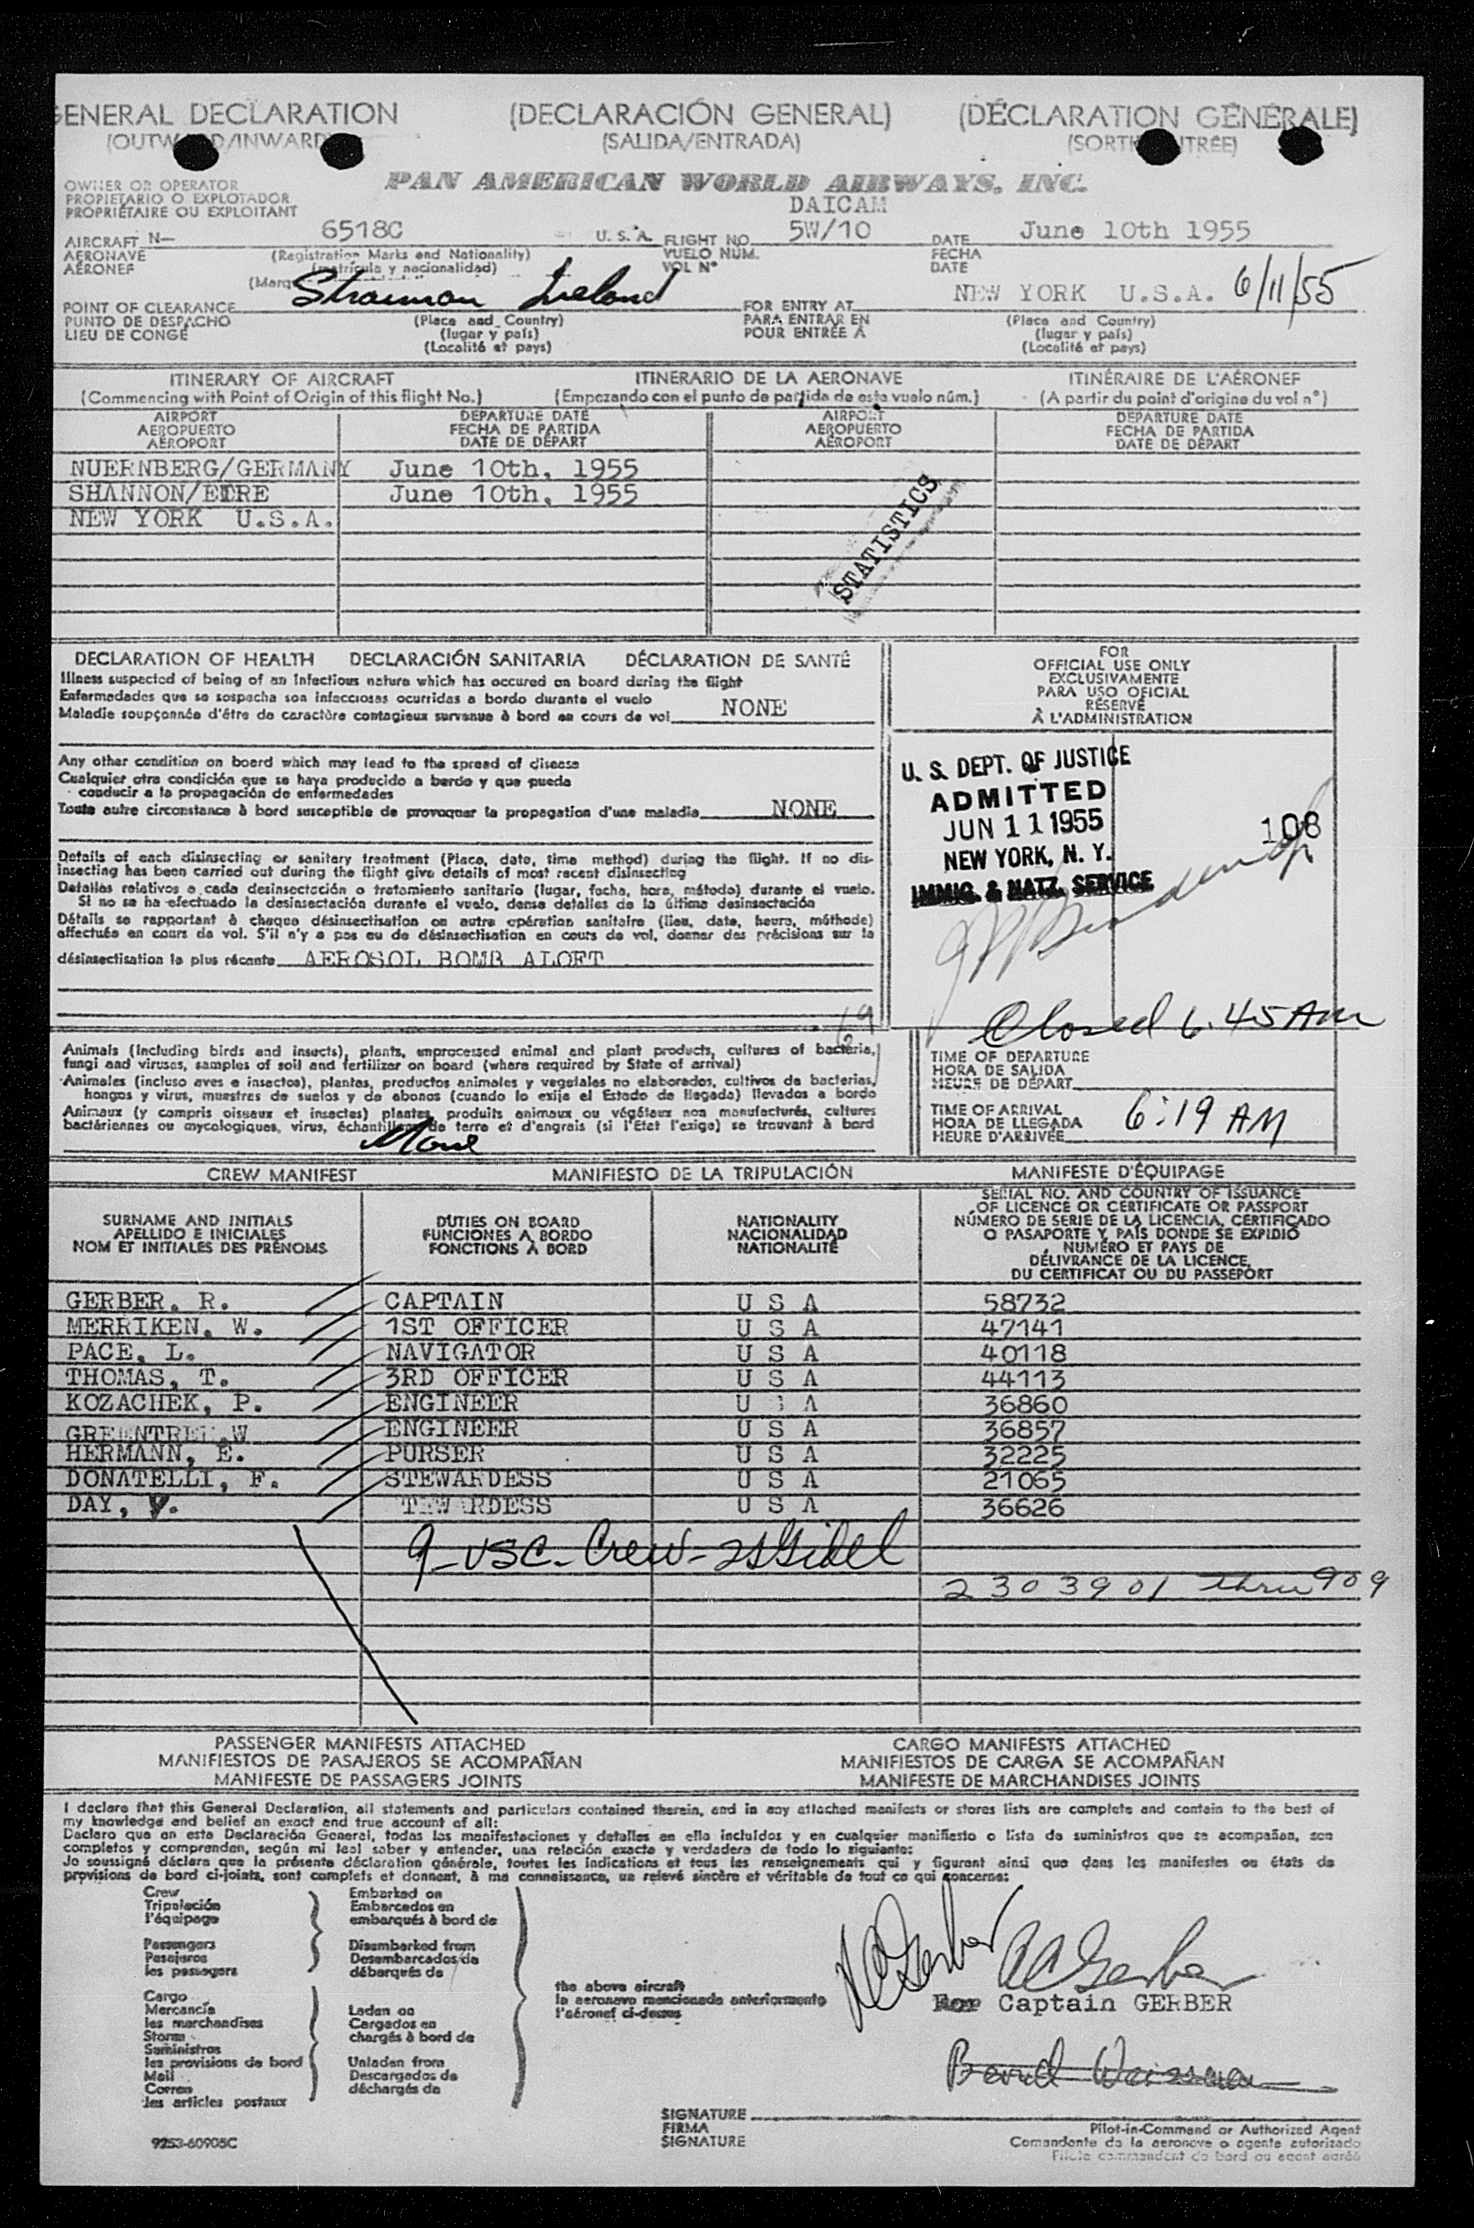 GENERAL DECLARATION (DECLARACIÓN GENERAL) (DÉCLARATION GÉNÉRALE)
(SALIDA/ENTRADA)
OWNER OR OPERATOR PAN AMERICAN WORLD AIRWAYS, INC.
PROPIETARIO O EXPLOTADOR DAICAM
PROPRIÉTAIRE OU EXPLOITANT
AIRCRAFT N— 6518C U. S. A. FLIGHT NO. 5W/10 DATE June 10th 1955
AERONAVE (Registration Marks and Nationality) VUELO NÚM. FECHA
AÉRONEF (matrícula y nacionalidad) VOL Nº DATE
(Marq
POINT OF CLEARANCE Ireland FOR ENTRY AT NEW YORK U.S.A. 6/11/55
PUNTO DE DESPACHO (Place and Country) PARA ENTRAR EN (Place and Country)
LIEU DE CONGÉ (lugar y país) POUR ENTRÉE À (lugar y país)
(Localité et pays) (Localité et pays)
ITINERARY OF AIRCRAFT ITINERARIO DE LA AERONAVE ITINÉRAIRE DE L'AÉRONEF
(Commencing with Point of Origin of this flight No.) (Empezando con el punto de partida de este vuelo núm.) (A partir du point d'origine du vol nº)
AIRPORT DEPARTURE DATE AIRPORT DEPARTURE DATE
AEROPUERTO FECHA DE PARTIDA AEROPUERTO FECHA DE PARTIDA
AÉROPORT DATE DE DÉPART AÉROPORT DATE DE DÉPART
NUERNBERG/GERMANY June 10th, 1955
SHANNON/EIRE June 10th, 1955
NEW YORK U.S.A.
STATISTICS
DECLARATION OF HEALTH DECLARACIÓN SANITARIA DÉCLARATION DE SANTÉ
Illness suspected of being of an infectious nature which has occured on board during the flight
Enfermedades que se sospecha son infecciosas ocurridas a bordo durante el vuelo
Maladie soupçonnée d'être de caractère contagieux survenue à bord en cours de vol NONE
Any other condition on board which may lead to the spread of disease
Cualquier otra condición que se haya producido a bordo y que pueda
conducir a la propagación de enfermedades
Toute autre circonstance à bord susceptible de provoquer la propagation d'une maladie NONE
Details of each disinsecting or sanitary treatment (Place, date, time method) during the flight. If no dis-
insecting has been carried out during the flight give details of most recent disinsecting
Detalles relativos a cada desinsectación o tratamiento sanitario (lugar, fecha, hora, método) durante el vuelo.
Si no se ha efectuado la desinsectación durante el vuelo, dense detalles de la última desinsectación
Détails se rapportant à chaque désinsectisation ou autre opération sanitaire (lieu, date, heure, méthode)
effectuée en cours de vol. S'il n'y a pas eu de désinsectisation en cours de vol, donner des précisions sur la
désinsectisation la plus récente AEROSOL BOMB ALOFT
FOR
OFFICIAL USE ONLY
EXCLUSIVAMENTE
PARA USO OFICIAL
RÉSERVÉ
À L'ADMINISTRATION
U. S. DEPT. OF JUSTICE
ADMITTED
JUN 11 1955 108
NEW YORK, N. Y.
IMMIG. & NATZ. SERVICE
Closed 6.45 AM
69
Animals (including birds and insects), plants, unprocessed animal and plant products, cultures of bacteria,
fungi and viruses, samples of soil and fertilizer on board (where required by State of arrival)
Animales (incluso aves e insectos), plantas, productos animales y vegetales no elaborados, cultivos de bacterias,
hongos y virus, muestras de suelos y de abonos (cuando lo exija el Estado de llegada) llevados a bordo
Animaux (y compris oiseaux et insectes) plantes, produits animaux ou végétaux non manufacturés, cultures
bactériennes ou mycologiques, virus, échantillons de terre et d'engrais (si l'État l'exige) se trouvant à bord
None
TIME OF DEPARTURE
HORA DE SALIDA
HEURE DE DÉPART
TIME OF ARRIVAL
HORA DE LLEGADA 6:19 AM
HEURE D'ARRIVÉE
CREW MANIFEST MANIFIESTO DE LA TRIPULACIÓN MANIFESTE D'ÉQUIPAGE
SURNAME AND INITIALS DUTIES ON BOARD NATIONALITY
APELLIDO E INICIALES FUNCIONES A BORDO NACIONALIDAD
NOM ET INITIALES DES PRÉNOMS FONCTIONS À BORD NATIONALITÉ
SERIAL NO. AND COUNTRY OF ISSUANCE
OF LICENCE OR CERTIFICATE OR PASSPORT
NÚMERO DE SERIE DE LA LICENCIA, CERTIFICADO
O PASAPORTE Y PAÍS DONDE SE EXPIDIÓ
NUMÉRO ET PAYS DE
DÉLIVRANCE DE LA LICENCE,
DU CERTIFICAT OU DU PASSEPORT
GERBER, R. CAPTAIN U S A 58732
MERRIKEN, W. 1ST OFFICER U S A 47141
PACE, L. NAVIGATOR U S A 40118
THOMAS, T. 3RD OFFICER U S A 44113
KOZACHEK, P. ENGINEER U S A 36860
GREENTREE, W ENGINEER U S A 36857
HERMANN, E. PURSER U S A 32225
DONATELLI, F. STEWARDESS U S A 21065
DAY, V. TEWARDESS U S A 36626
9-USC-Crew-
2303901 thru 909
PASSENGER MANIFESTS ATTACHED CARGO MANIFESTS ATTACHED
MANIFIESTOS DE PASAJEROS SE ACOMPAÑAN MANIFIESTOS DE CARGA SE ACOMPAÑAN
MANIFESTE DE PASSAGERS JOINTS MANIFESTE DE MARCHANDISES JOINTS
I declare that this General Declaration, all statements and particulars contained therein, and in any attached manifests or stores lists are complete and contain to the best of
my knowledge and belief an exact and true account of all:
Declaro que en esta Declaración General, todas las manifestaciones y detalles en ella incluídos y en cualquier manifiesto o lista de suministros que se acompañan, son
completos y comprenden, según mi leal saber y entender, una relación exacta y verdadera de todo lo siguiente:
Je soussigné déclare que la présente déclaration générale, toutes les indications et tous les renseignements qui y figurent ainsi que dans les manifestes ou états de
provisions de bord ci-joints, sont complets et donnent, à ma connaissance, un relevé sincère et véritable de tout ce qui concerne:
Crew Embarked on
Tripulación Embarcados en
l'équipage embarqués à bord de
Passengers Disembarked from
Pasajeros Desembarcados de
les passagers débarqués de
the above aircraft
la aeronave mencionada anteriormente
l'aéronef ci-dessus
Cargo
Mercancía Laden on
les marchandises Cargados en
Stores chargés à bord de
Suministros
les provisions de bord Unladen from
Mail Descargados de
Correo déchargés de
les articles postaux
RCGerber RCGerber
For Captain GERBER
SIGNATURE
FIRMA Pilot-in-Command or Authorized Agent
SIGNATURE Comandante de la aeronave o agente autorizado
Pilote commandant de bord ou agent agréé
9253-60905C